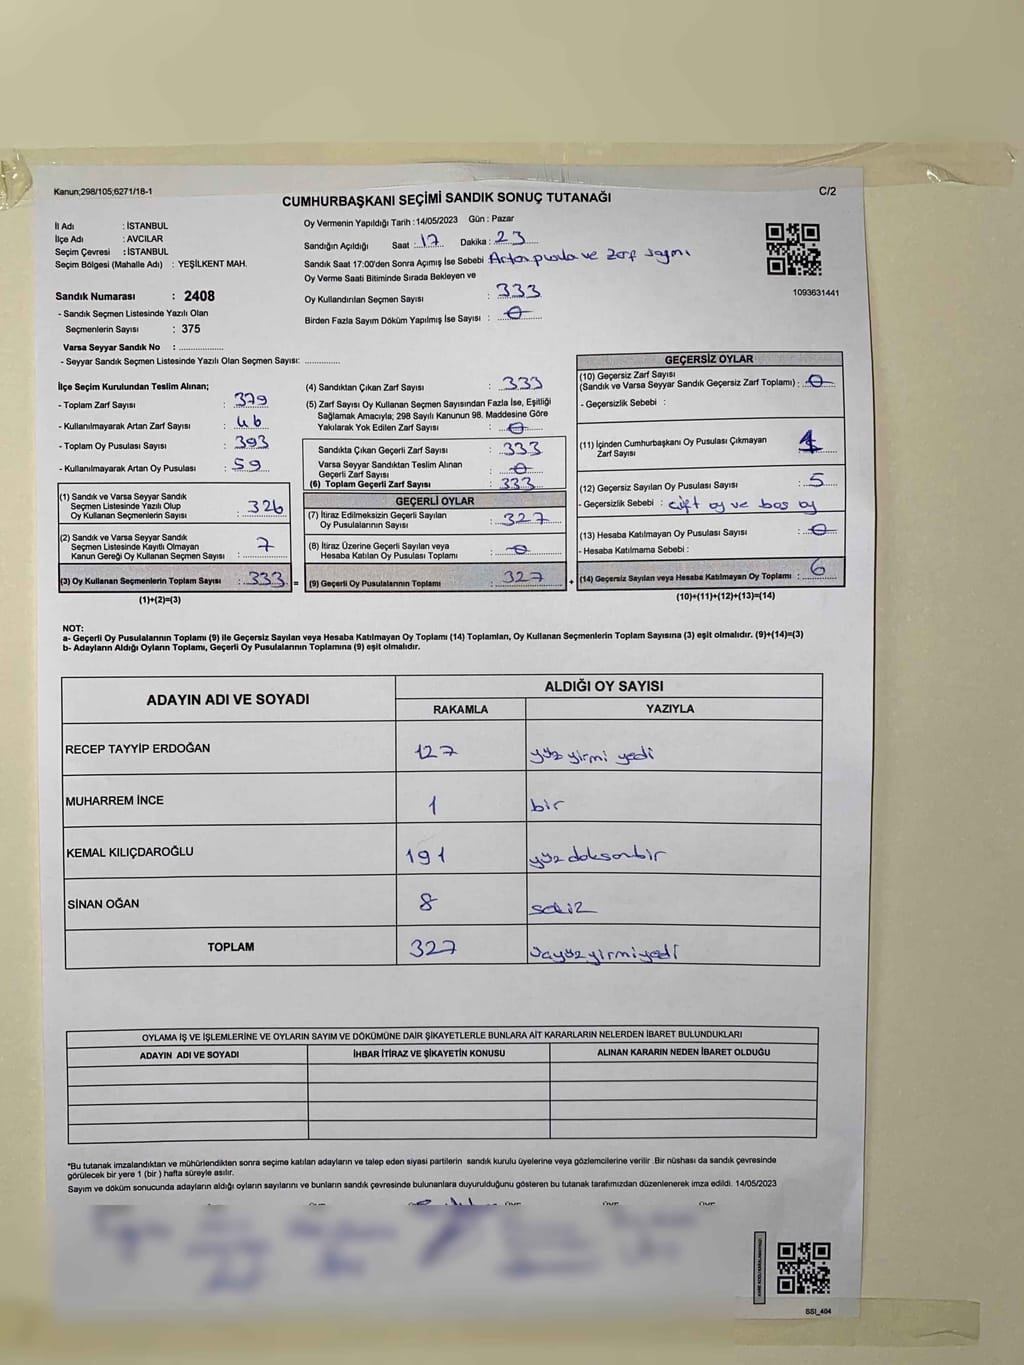 Kanun;298/105;6271/18-1
C/2
CUMHURBAŞKANI SEÇİMİ SANDIK SONUÇ TUTANAĞI
İl Adı : İSTANBUL
İlçe Adı : AVCILAR
Seçim Çevresi : İSTANBUL
Seçim Bölgesi (Mahalle Adı) : YEŞİLKENT MAH.
Sandık Numarası : 2408
- Sandık Seçmen Listesinde Yazılı Olan
Seçmenlerin Sayısı : 375
Varsa Seyyar Sandık No : ...............
- Seyyar Sandık Seçmen Listesinde Yazılı Olan Seçmen Sayısı: ............
Oy Vermenin Yapıldığı Tarih : 14/05/2023 Gün : Pazar
Sandığın Açıldığı Saat : 17 Dakika : 23
Sandık Saat 17:00'den Sonra Açımış İse Sebebi Artan pusula ve zarf sayımı
Oy Verme Saati Bitiminde Sırada Bekleyen ve
Oy Kullandırılan Seçmen Sayısı : 333
Birden Fazla Sayım Döküm Yapılmış İse Sayısı : 0
1093631441
İlçe Seçim Kurulundan Teslim Alınan;
- Toplam Zarf Sayısı : 379
- Kullanılmayarak Artan Zarf Sayısı : 46
- Toplam Oy Pusulası Sayısı : 393
- Kullanılmayarak Artan Oy Pusulası : 59
(1) Sandık ve Varsa Seyyar Sandık
Seçmen Listesinde Yazılı Olup
Oy Kullanan Seçmenlerin Sayısı : 326
(2) Sandık ve Varsa Seyyar Sandık
Seçmen Listesinde Kayıtlı Olmayan
Kanun Gereği Oy Kullanan Seçmen Sayısı : 7
(3) Oy Kullanan Seçmenlerin Toplam Sayısı : 333 =
(1)+(2)=(3)
(4) Sandıktan Çıkan Zarf Sayısı : 333
(5) Zarf Sayısı Oy Kullanan Seçmen Sayısından Fazla İse, Eşitliği
Sağlamak Amacıyla; 298 Sayılı Kanunun 98. Maddesine Göre
Yakılarak Yok Edilen Zarf Sayısı : 0
Sandıkta Çıkan Geçerli Zarf Sayısı : 333
Varsa Seyyar Sandıktan Teslim Alınan
Geçerli Zarf Sayısı : 0
(6) Toplam Geçerli Zarf Sayısı : 333
GEÇERLİ OYLAR
(7) İtiraz Edilmeksizin Geçerli Sayılan
Oy Pusulalarının Sayısı : 327
(8) İtiraz Üzerine Geçerli Sayılan veya
Hesaba Katılan Oy Pusulası Toplamı : 0
(9) Geçerli Oy Pusulalarının Toplamı : 327 +
GEÇERSİZ OYLAR
(10) Geçersiz Zarf Sayısı
(Sandık ve Varsa Seyyar Sandık Geçersiz Zarf Toplamı) : 0
- Geçersizlik Sebebi :
(11) İçinden Cumhurbaşkanı Oy Pusulası Çıkmayan
Zarf Sayısı 1
(12) Geçersiz Sayılan Oy Pusulası Sayısı : 5
- Geçersizlik Sebebi : çift oy ve boş oy
(13) Hesaba Katılmayan Oy Pusulası Sayısı : 0
- Hesaba Katılmama Sebebi :
(14) Geçersiz Sayılan veya Hesaba Katılmayan Oy Toplamı : 6
(10)+(11)+(12)+(13)=(14)
NOT:
a- Geçerli Oy Pusulalarının Toplamı (9) ile Geçersiz Sayılan veya Hesaba Katılmayan Oy Toplamı (14) Toplamları, Oy Kullanan Seçmenlerin Toplam Sayısına (3) eşit olmalıdır. (9)+(14)=(3)
b- Adayların Aldığı Oyların Toplamı, Geçerli Oy Pusulalarının Toplamına (9) eşit olmalıdır.
ADAYIN ADI VE SOYADI ALDIĞI OY SAYISI
RAKAMLA YAZIYLA
RECEP TAYYİP ERDOĞAN 127 yüz yirmi yedi
MUHARREM İNCE 1 bir
KEMAL KILIÇDAROĞLU 191 yüz doksan bir
SİNAN OĞAN 8 sekiz
TOPLAM 327 üçyüzyirmiyedi
OYLAMA İŞ VE İŞLEMLERİNE VE OYLARIN SAYIM VE DÖKÜMÜNE DAİR ŞİKAYETLERLE BUNLARA AİT KARARLARIN NELERDEN İBARET BULUNDUKLARI
ADAYIN ADI VE SOYADI İHBAR İTİRAZ VE ŞİKAYETİN KONUSU ALINAN KARARIN NEDEN İBARET OLDUĞU
*Bu tutanak imzalandıktan ve mühürlendikten sonra seçime katılan adayların ve talep eden siyasi partilerin sandık kurulu üyelerine veya gözlemcilerine verilir .Bir nüshası da sandık çevresinde
görülecek bir yere 1 (bir ) hafta süreyle asılır.
Sayım ve döküm sonucunda adayların aldığı oyların sayılarını ve bunların sandık çevresinde bulunanlara duyurulduğunu gösteren bu tutanak tarafımızdan düzenlenerek imza edildi. 14/05/2023
SSI_404